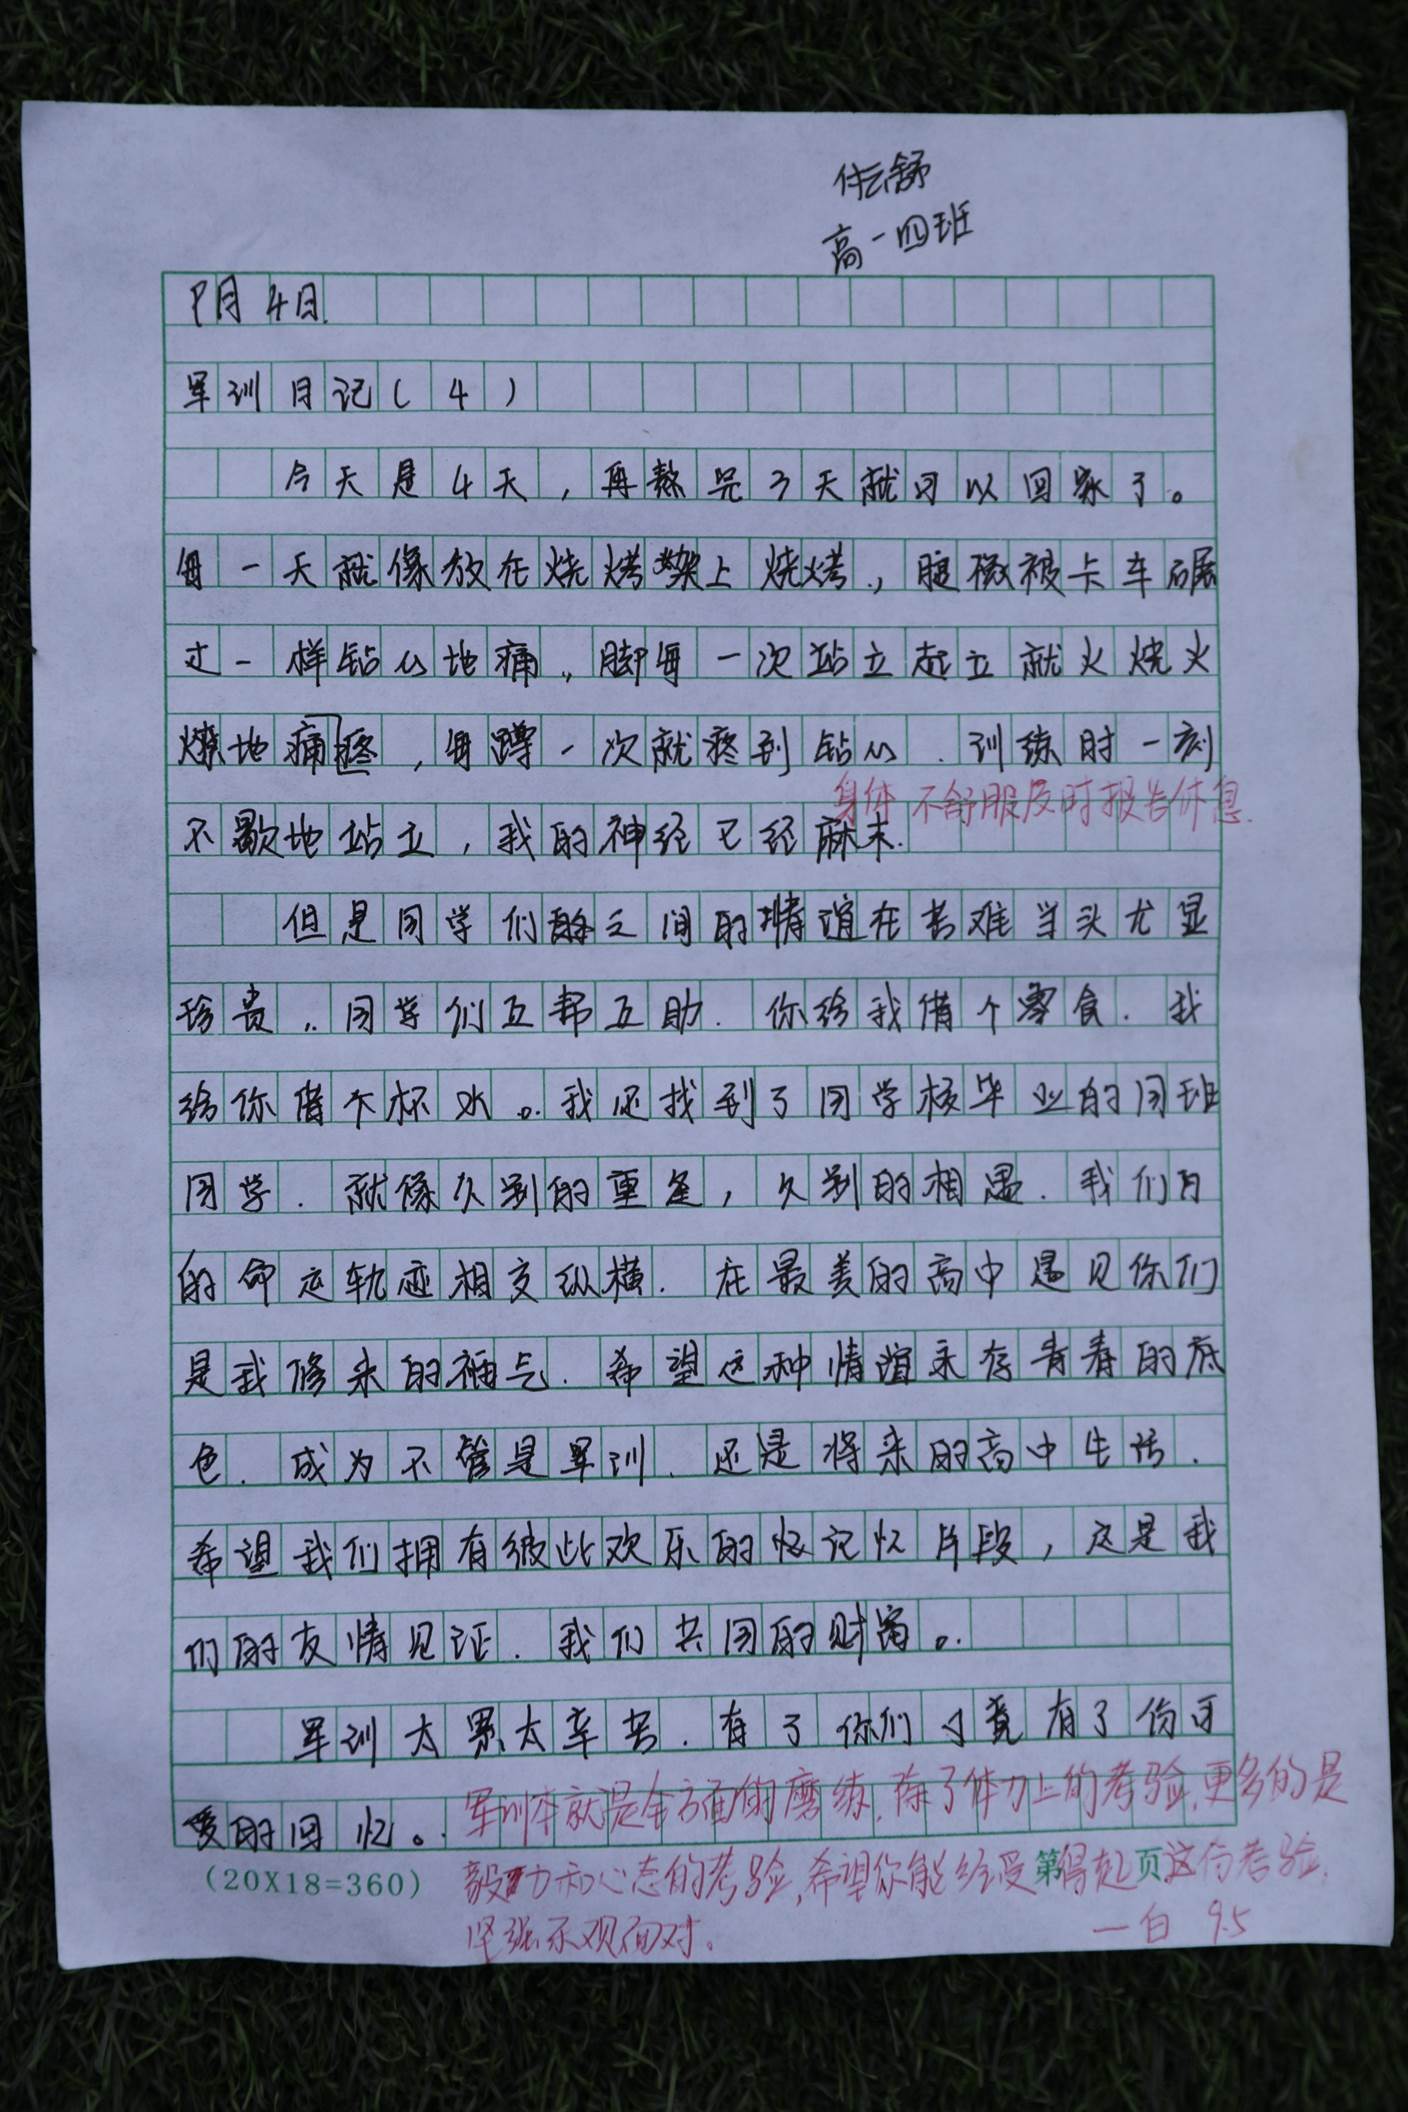 任舒
高一四班
9月4日.
军训日记(4)
今天是4天,再熬完3天就可以回家了。
每一天就像放在烧烤架上烧烤,腿被卡车碾
过一样钻心地痛,脚每一次站立起立就火烧火
燎地疼,每蹲一次就疼到钻心.训练时一刻
身体不舒服及时报告休息.
不歇地站立,我的神经已经麻木.
但是同学们之间的情谊在苦难当头尤显
珍贵.同学们互帮互助.你给我借个零食.我
给你借个杯水。我还找到了同学校毕业的同班
同学.就像久别的重逢,久别的相遇.我们
的命运轨迹相交纵横.在最美的高中遇见你们
是我修来的福气.希望这种情谊永存青春的底
色.成为不管是军训.还是将来的高中生活.
希望我们拥有彼此欢乐的记忆片段,这是我
们的友情见证.我们共同的财富。
军训太累太辛苦.有了你们才竟有了份可
爱的回忆。
军训本就是全方面的磨练,除了体力上的考验,更多的是
毅力和心态的考验,希望你能经受得起这份考验,
坚强乐观面对。
一白 9.5
(20X18=360)
第 页